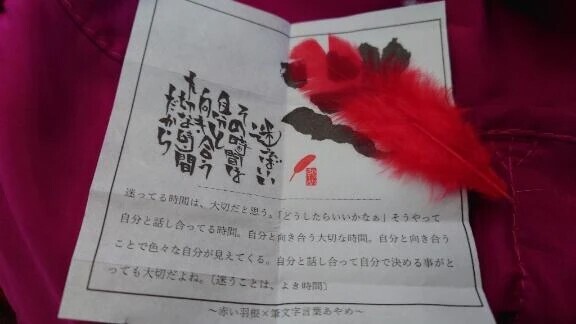 迷えばいい
その時間は
自分と
向き合う
大切な時間
だから
迷ってる時間は、大切だと思う。「どうしたらいいかなぁ」そうやって
自分と話し合ってる時間。自分と向き合う大切な時間。自分と向き合う
ことで色々な自分が見えてくる。自分と話し合って自分で決める事がと
っても大切だよね。〔迷うことは、よき時間〕
～赤い羽根×筆文字言葉あやめ～